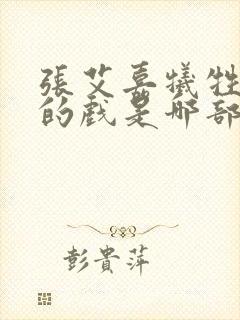 張艾嘉犧牲
的戲是哪部
彭貴萍